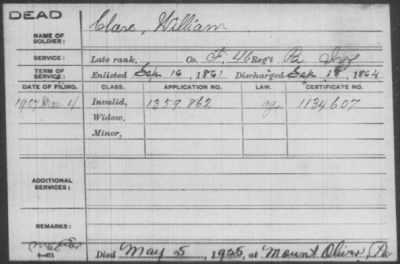 DEAD
Clare, William
NAME OF SOLDIER:
SERVICE: Late rank, Co. F, 46 Reg't Pa Inf
TERM OF SERVICE: Enlisted Sep. 16, 1861 Discharged Sep. 18, 1864
DATE OF FILING. CLASS. APPLICATION NO. LAW. CERTIFICATE NO.
1907 Mar. 4 Invalid, 1359.862 1134607
Widow,
Minor,
ADDITIONAL SERVICES:
REMARKS:
Died May 5, 1925, at Mount Oliver, Pa